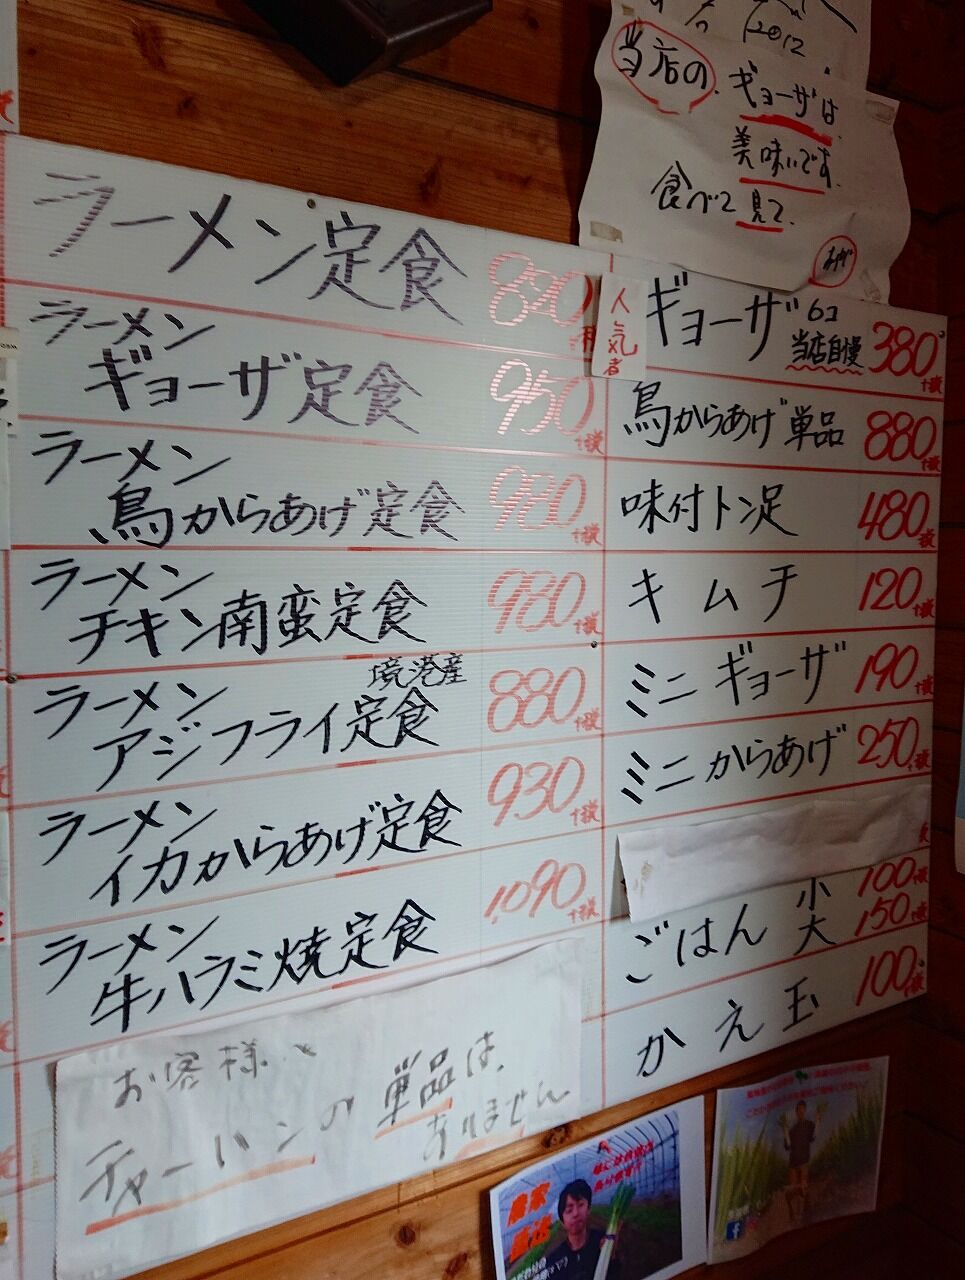 当店の
ギョーザは
美味いです
食べて見て
ラーメン定食 820
ラーメン
ギョーザ定食 950
ラーメン
鳥からあげ定食 980
ラーメン
チキン南蛮定食 980
ラーメン 境港産
アジフライ定食 880
ラーメン
イカからあげ定食 930
ラーメン
牛ハラミ焼定食 1,090
お客様へ
チャーハンの単品は、
ありません
人気者
ギョーザ 6コ 当店自慢 380
鳥からあげ 単品 880
味付トン足 480
キムチ 120
ミニギョーザ 190
ミニからあげ 250
ごはん 小 100
大 150
かえ玉 100
農家
直送